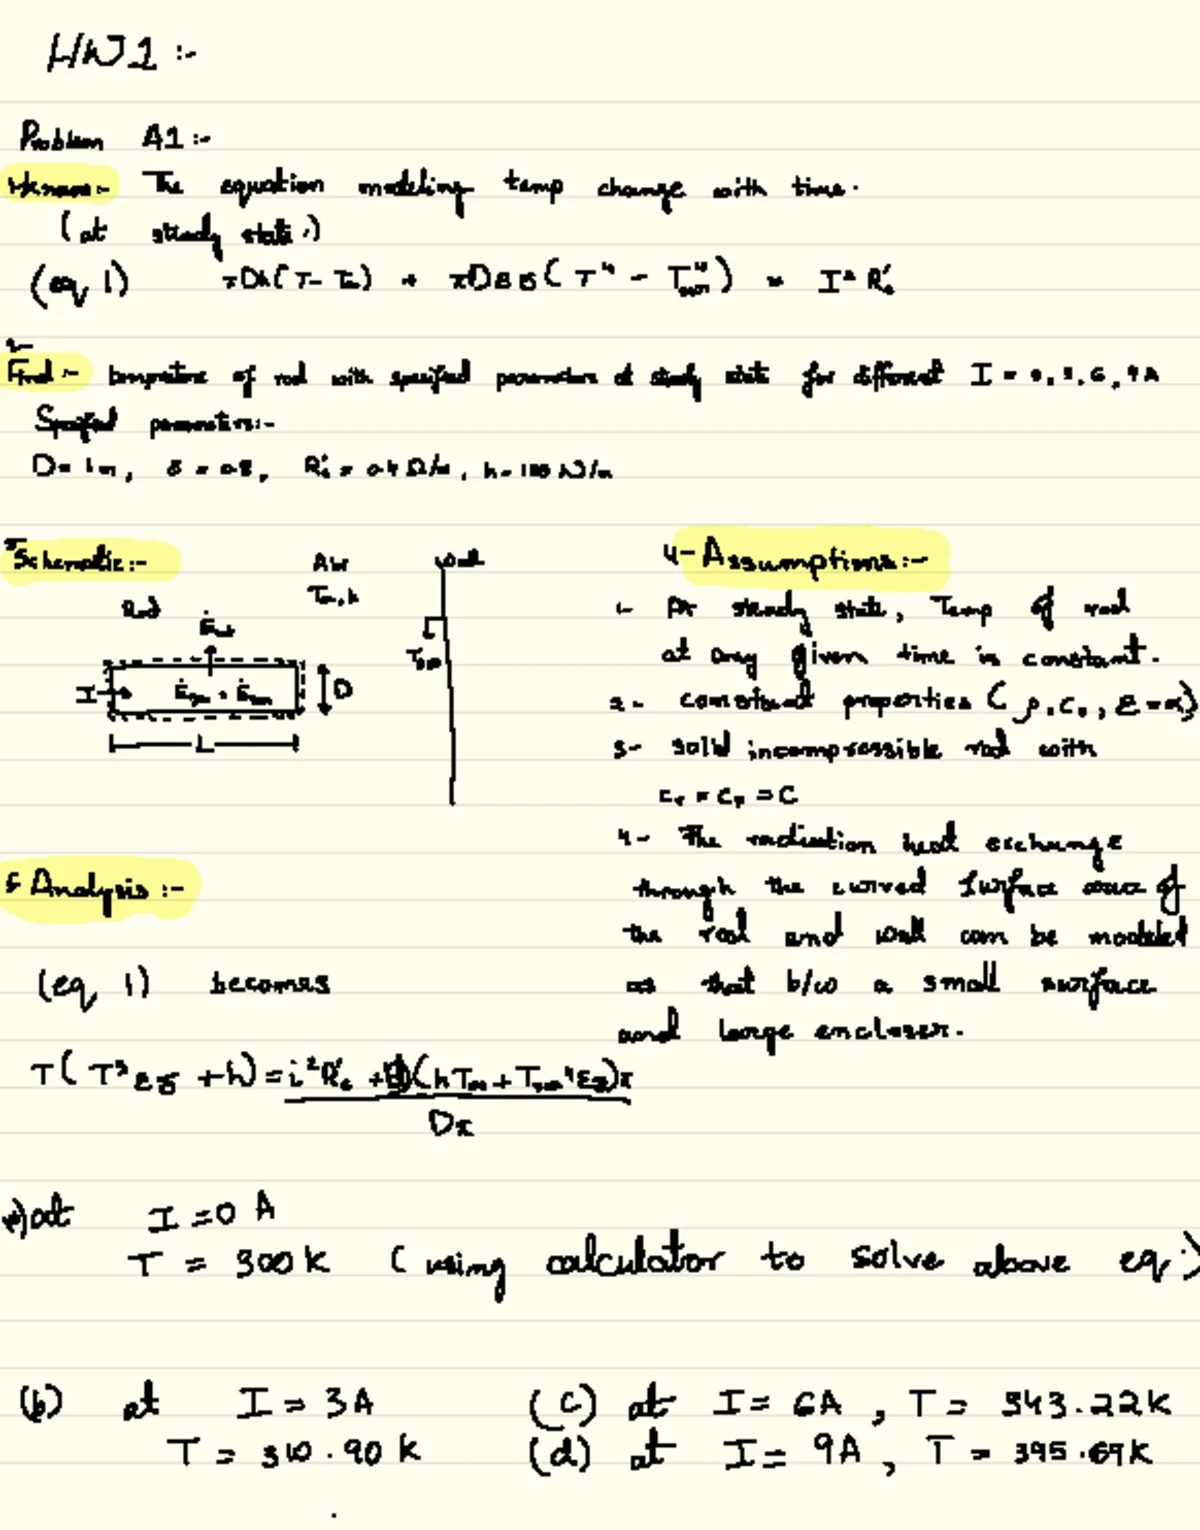 HW1 :-
Problem A1 :-
Known:- The equation modeling temp change with time.
(at steady state.)
(eq 1) πDh(T - T∞) + πDεσ(T⁴ - T⁴sur) = I² R'e
Find :- temperature of rod with specified parameters at steady state for different I = 0, 3, 6, 9A
Specified parameters:-
D = 1m, ε = 0.8, R'e = 0.4 Ω/m, h = 100 W/m
Schematic:-
Air
T∞, h
Wall
Rod
Ėout
Tsur
I
Ėgen, Ėstn
D
L
4- Assumptions :-
1- At steady state, Temp of rod
at any given time is constant.
2- constant properties (ρ, c, , ε = α)
3- solid incompressible rod with
cv = cp = C
4- The radiation heat exchange
through the curved surface area of
the rod and wall can be modeled
as that b/w a small surface
and large encloser.
5 Analysis :-
(eq 1) becomes
T(T³εσ + h) = i²R'e + D(hT∞ + Tsur⁴εσ)π
Dπ
at I = 0 A
T = 300 K (using calculator to solve above eq.)
(b) at I = 3A
T = 310.90 K
(c) at I = 6A , T = 343.22K
(d) at I = 9A , T = 395.69K